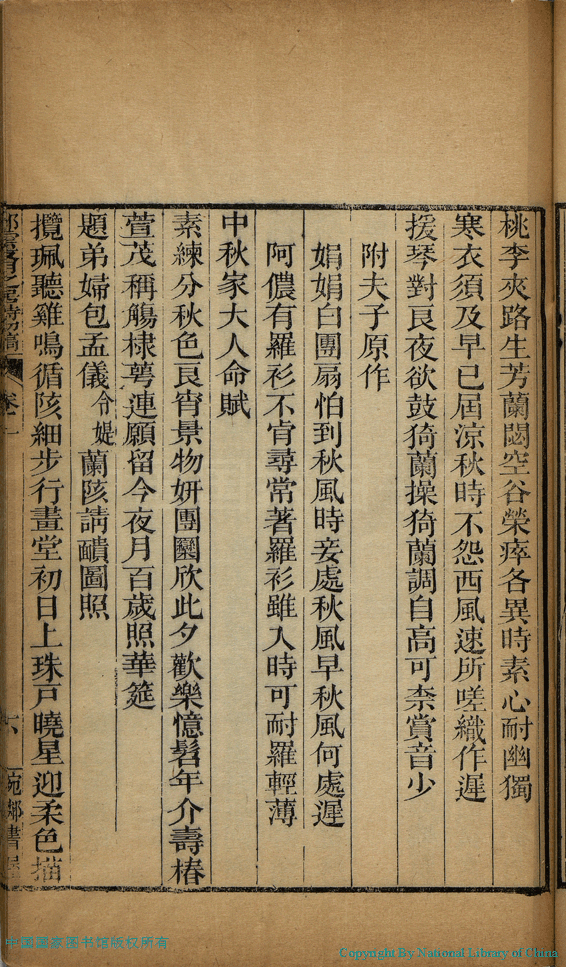 桃李夾路生芳蘭閟空谷榮瘁各異時素心耐幽獨
寒衣須及早已屆涼秋時不怨西風速所嗟織作遲
援琴對良夜欲鼓猗蘭操猗蘭調自高可柰賞音少
附夫子原作
娟娟白團扇怕到秋風時妾處秋風早秋風何處遲
阿儂有羅衫不肯尋常著羅衫雖入時可耐羅輕薄
中秋家大人命賦
素練分秋色良宵景物妍團圞欣此夕歡樂憶髫年介壽椿
萱茂稱觴棣萼連願留今夜月百歲照華筵
題弟婦包孟儀令媞蘭陔請饋圖照
攬珮聽雞鳴循陔細步行畫堂初日上珠戸曉星迎柔色描
卷一
六
宛鄰書屋
中国国家图书馆版权所有
Copyright By National Library of China